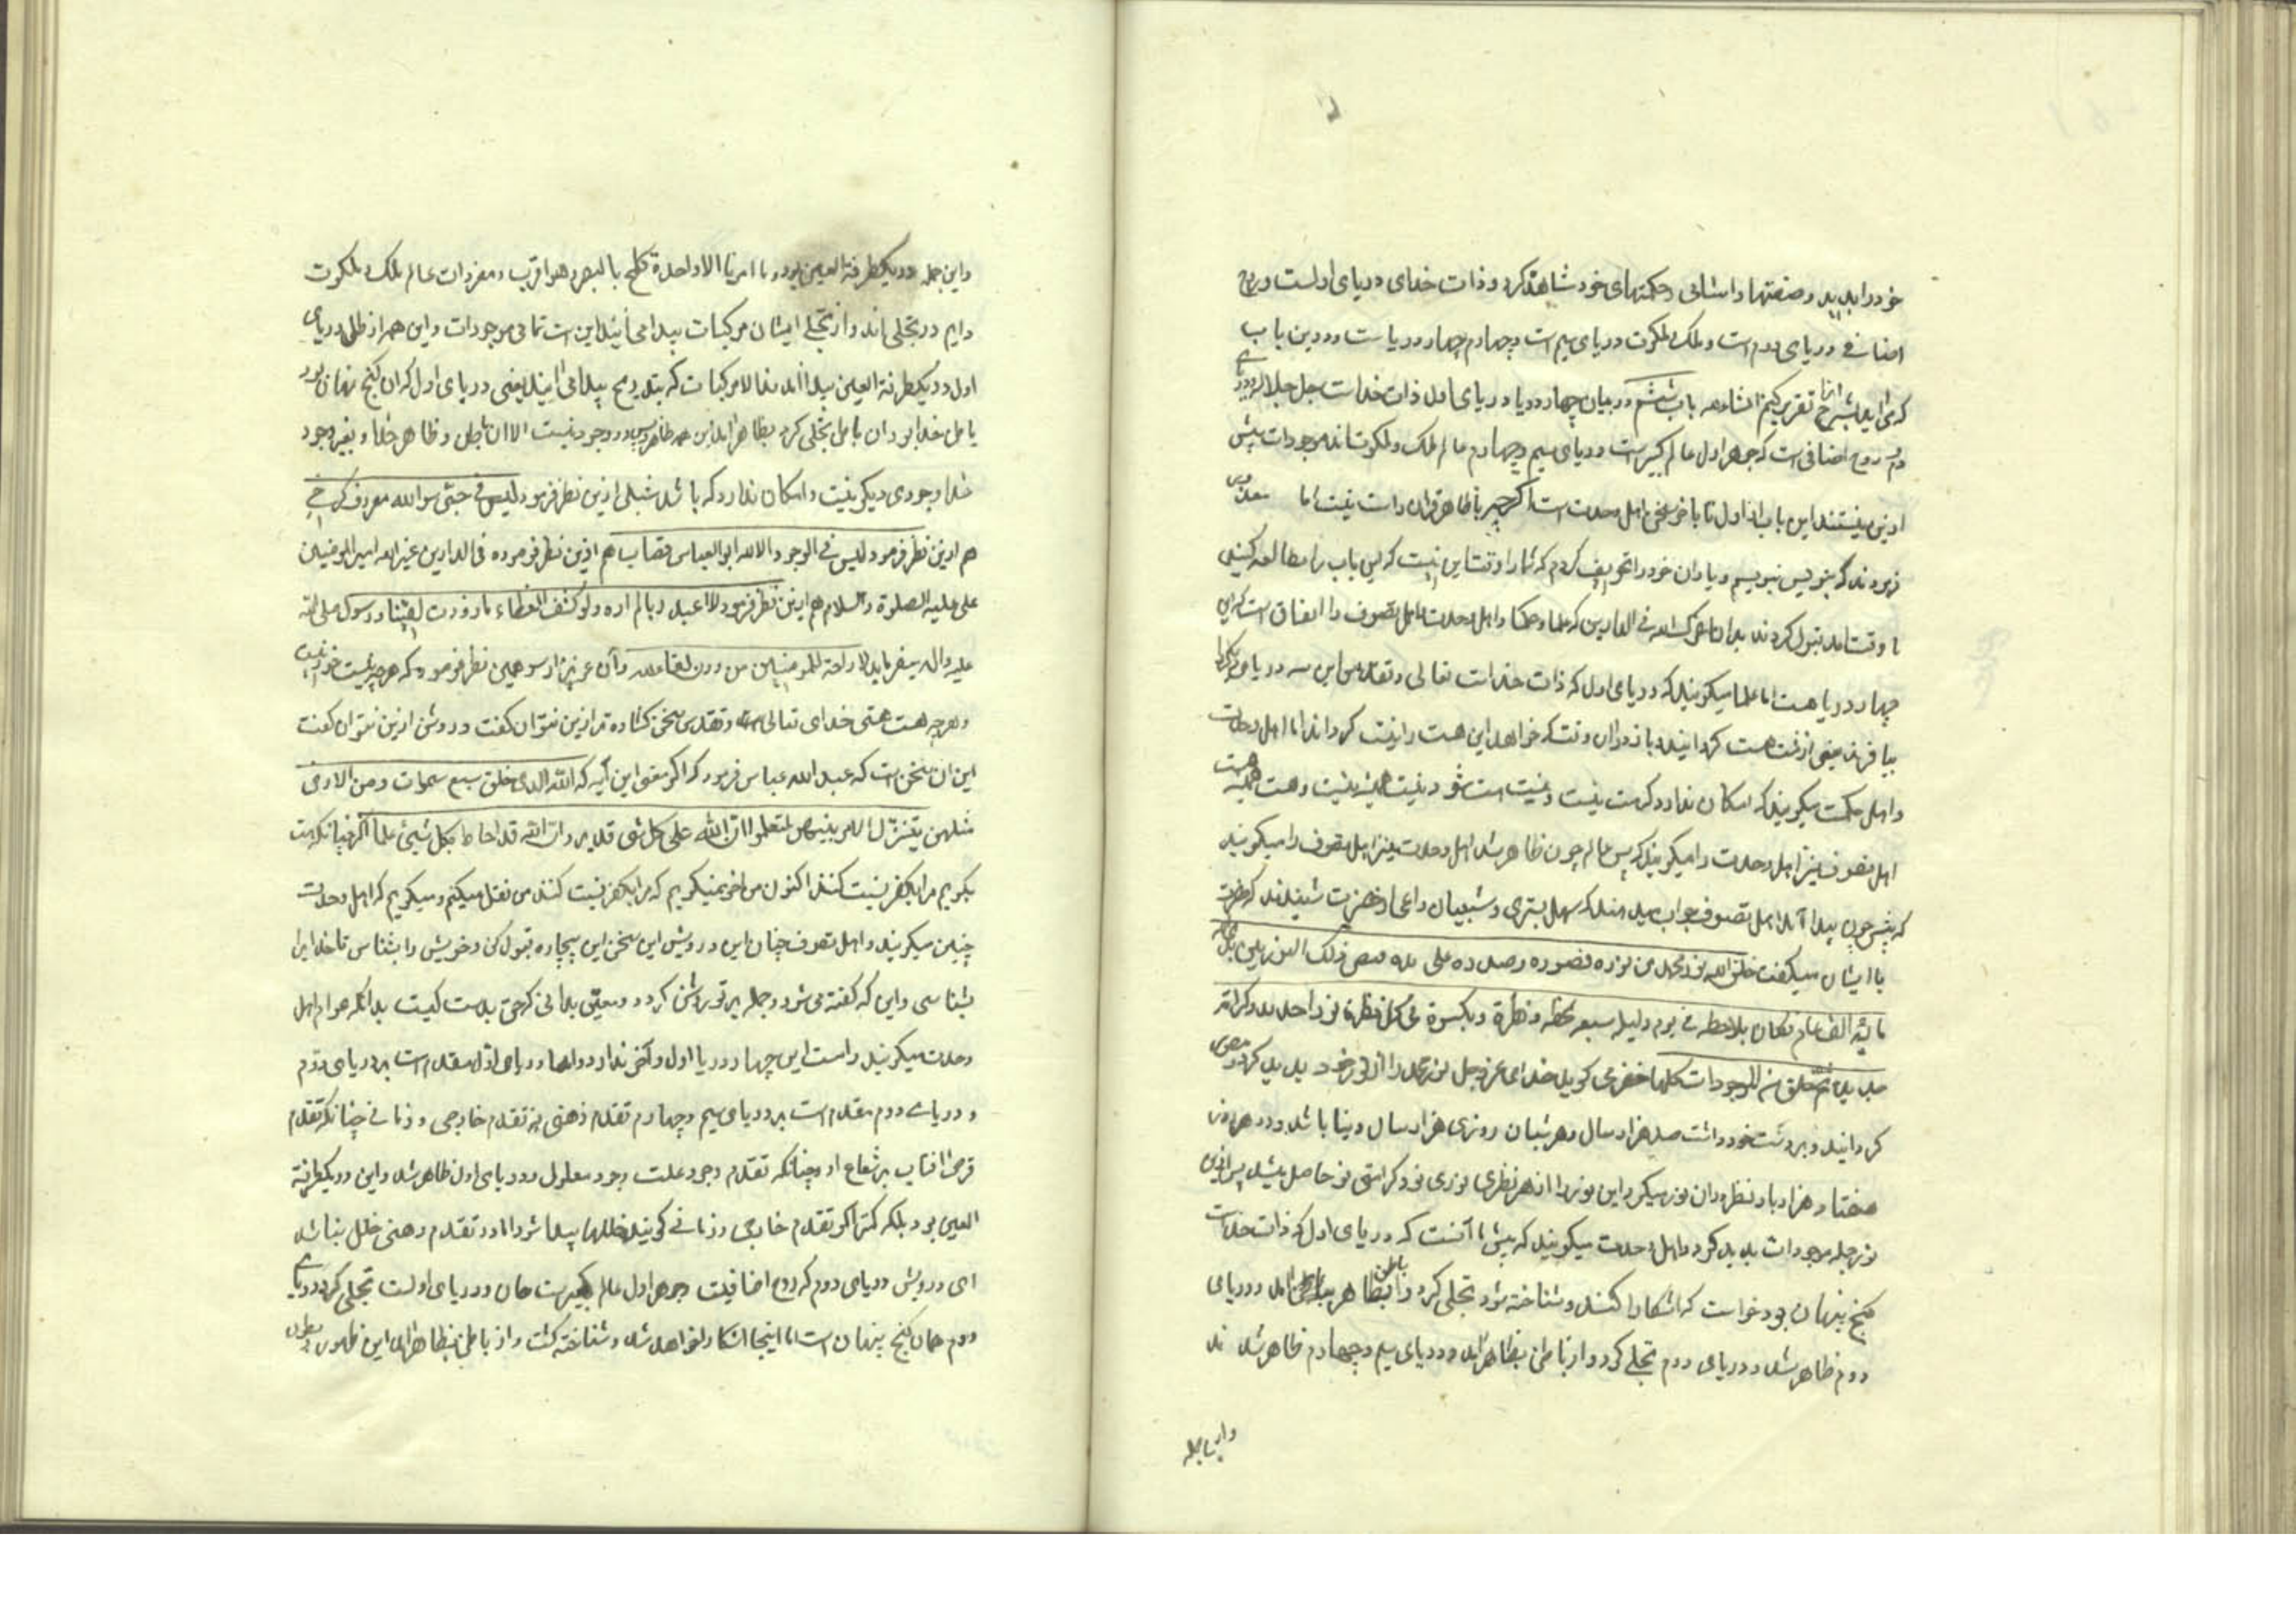 خود را بدید و صفتها و اسامی و حکمتهای خود مشاهده کرد و ذات خدای دریای اولست و روح
اضافی دریای دوم است و ملک و ملکوت دریای سیم است و چهارم چهار دریاست و درین باب
که می‌آید بشرح آنرا تقریر کنیم انشاءالله باب ششم در بیان چهار دریا دریای اول ذات خداست جل جلاله و دریای
دوم روح اضافی است که جوهر اول عالم کبیر است و دریای سیم و چهارم عالم ملک و ملکوت‌اند موجودات بیش
ازین نیستند این باب از اول تا بآخر سخن اهل وحدت است اگر چه با ظاهر قران راست نیست اما
فرمودند که بنویس بنویسم و یاران خود را تخویف کردم که شما را وقت این نیست که این باب را مطالعه کنید
تا وقت آمد قبول کردند بدان اعزک الله فی الدارین که علما و حکما و اهل وحدت و اهل تصوف را اتفاق است که این
چهار دریا هست اما علما میگویند که دریای اول که ذات خداست تعالی و تقدس این سه دریای دیگر را
بیافرید یعنی از نیست هست گردانید و باز دران وقت که خواهد این هست را نیست گرداند اما اهل وحدت
و اهل حکمت میگویند که امکان ندارد که هست نیست و نیست هست شود نیست همیشه نیست و هست همیشه هست
اهل تصوف نیز اهل وحدت را میگویند که پس عالم چون ظاهر شد اهل وحدت نیز اهل تصوف را میگویند
که پس چون پیدا آمد اهل تصوف جواب میدهند که
با ایشان میگفت خلق الله نور محمد من نوره فصوره و صدره علی یده فبقی ذلک النور بین یدی الله تعالی
مائة الف عام فکان یلاحظه فی یوم و لیلة سبعه لحظه و نظرة و یکسوه فی کل نظرة نورا جدیدا و کرامة
جدیدة ثم خلق منه الموجودات کلها خضر می‌گوید خدای عز و جل نور محمد را از نور خود پدید کرد و مصور
گردانید و بر دست خود داشت صد هزار سال و هر شبان روزی هزار سال دنیا باشد و در هر روز
هفتاد هزار بار نظر دران نور میکرد این نور را از هر نظری نوری نو و کرامتی نو حاصل میشد پس ازین
نور جمله موجودات پدید کرد و اهل وحدت میگویند که پیش ما آنست که دریای اول که ذات خداست
گنج پنهان بود خواست که آشکارا کنند و شناخته شود تجلی کرد و از باطن بظاهر آمد و دریای
دوم ظاهر شد و دریای دوم تجلی کرد و از باطن بظاهر آمد و دریای سیم و چهارم ظاهر شدند
و این جمله
و این جمله در یکطرفة العین بود و ما امرنا الا واحدة کلمح بالبصر و هو اقرب و مفردات عالم ملک و ملکوت
دایم در تجلی‌اند و از تجلی ایشان مرکبات پیدا می‌آیند این است تمامی موجودات و این همه از ظل دریای
اول در یکطرفة العین پیدا آمدند الا مرکبات که بتدریج پیدا می‌آیند یعنی دریای اول که آن گنج پنهان بود
باطن خدا بود آن باطن تجلی کرد بظاهر آمد این همه ظاهر پس در وجود نیست الا آن باطن و ظاهر خدا و بغیر وجود
خدا وجودی دیگر نیست و امکان ندارد که باشد شبلی ازین نظر فرمود لیس فی جبتی سوا الله معروف کرخی
هم ازین نظر فرمود لیس فی الوجود الا الله ابو العباس قصاب هم ازین نظر فرموده فی الدارین غیر الله امیر المؤمنین
علی علیه الصلوة و السلام هم ازین نظر فرمود لا اعبد ربا لم اره و لو کشف الغطاء ما ازددت یقینا و رسول صلی الله
علیه و اله میفرماید لا راحة للمؤمنین من دون لقاء الله و آن عزیز از سر همین نظر فرمود که هر چه نیست خود نیست
و هر چه هست هستی خدای تعالی است و تقدس سخن گشاده‌تر ازین نتوان گفت و روشن ازین نتوان گفت
این آن سخن است که عبد الله عباس فرمود که اگر معنی این آیه که الله الذی خلق سبع سموات و من الارض
مثلهن یتنزل الامر بینهن لتعلموا ان الله علی کل شئ قدیر و ان الله قد احاط بکل شیئ علما اگر چنانکه هست
بگویم مرا بکفر نسبت کنند اکنون من آخر نمیگویم که مرا بکفر نسبت کنند من نقل میکنم و میگویم که اهل وحدت
چنین میگویند و اهل تصوف چنان ای درویش این سخن این بیچاره قبول کن و خویش را بشناس تا خدا را
بشناسی و این که گفته می‌شود جمله بر تو روشن گردد و معین بدانی که حق بدست کیست بدانکه عوام اهل
وحدت میگویند راست این چهار دریا اول و آخر ندارد و اما دریای اول مقدم است بر دریای دوم
و دریای دوم مقدم است بر دریای سیم و چهارم تقدم ذهنی نه تقدم خارجی و زمانی چنانکه تقدم
قرص آفتاب بر شعاع او و چنانکه تقدم وجود علت وجود معلول و دریای اول ظاهر شد و این در یکطرفة
العین بود بلکه کمتر اگر تقدم خارجی و زمانی گویند خللها پیدا شود اما در تقدم ذهنی خلل نباشد
ای درویش دریای دوم که روح اضافیست و جوهر اول عالم کبیر است همان دریای اولست تجلی کرد و دریای
دوم همان گنج پنهان است اما اینجا آشکارا خواهد شد و شناخته گشت و از باطن بظاهر آمد این ظهور